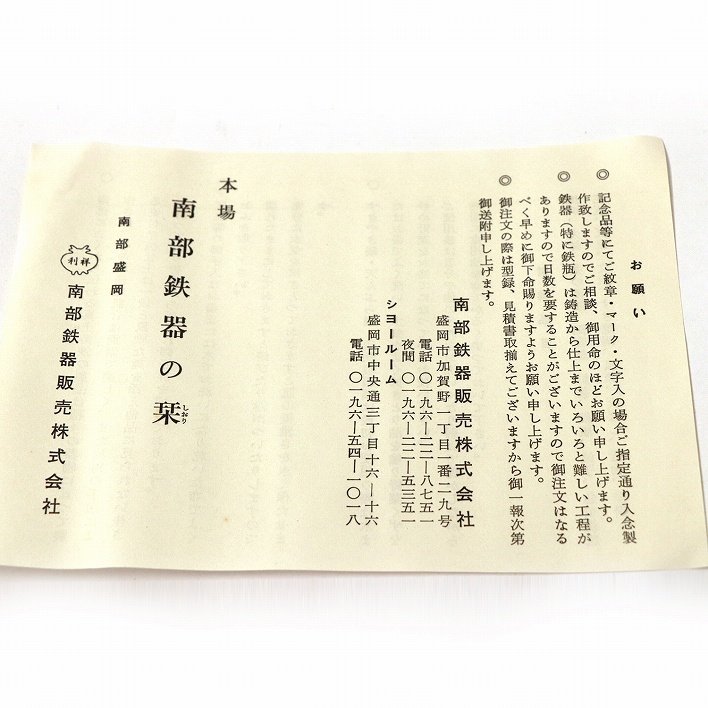 お願い
◎ 記念品等にてご紋章・マーク・文字入の場合ご指定通り入念製
作致しますのでご相談、御用命のほどお願い申し上げます。
◎ 鉄器(特に鉄瓶)は鋳造から仕上までいろいろと難しい工程が
ありますので日数を要することがございますので御注文はなる
べく早めに御下命賜りますようお願い申し上げます。
◎ 御注文の際は型録、見積書取揃えてございますから御一報次第
御送附申し上げます。
南部鉄器販売株式会社
盛岡市加賀野一丁目一番二九号
電話 〇一九六―二二―八七五一
夜間 〇一九六―二二―五三五一
シヨールーム
盛岡市中央通三丁目十六―十六
電話 〇一九六―五四―一〇一八
本場
南部鉄器の栞
しおり
南部盛岡
利祥
南部鉄器販売株式会社